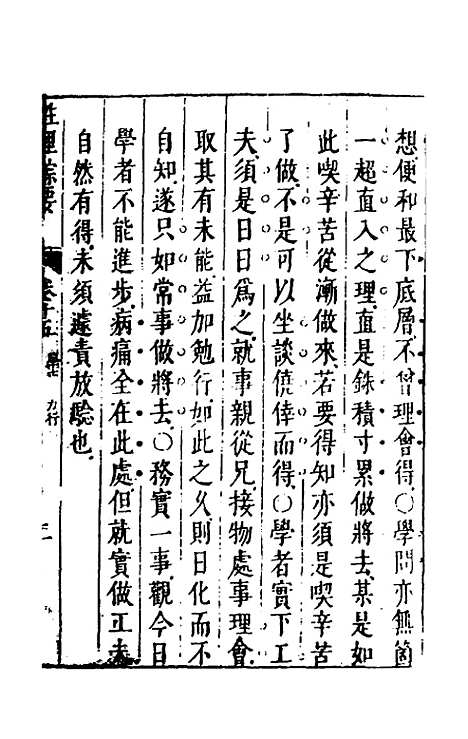 想便和最下底層不曾理會得○學問亦無箇
一超直入之理直是銖積寸累做將去某是如
此喫辛苦從漸做來若要得知亦須是喫辛苦
了做不是可以坐談僥倖而得○學者實下工
夫須是日日為之就事親從兄接物處事理會
取其有未能益加勉行如此之久則日化而不
自知遂只如常事做將去○務實一事觀今日
學者不能進步病痛全在此處但就實做工夫
自然有得未須遽責放驗也
性理綜要
學七 力行